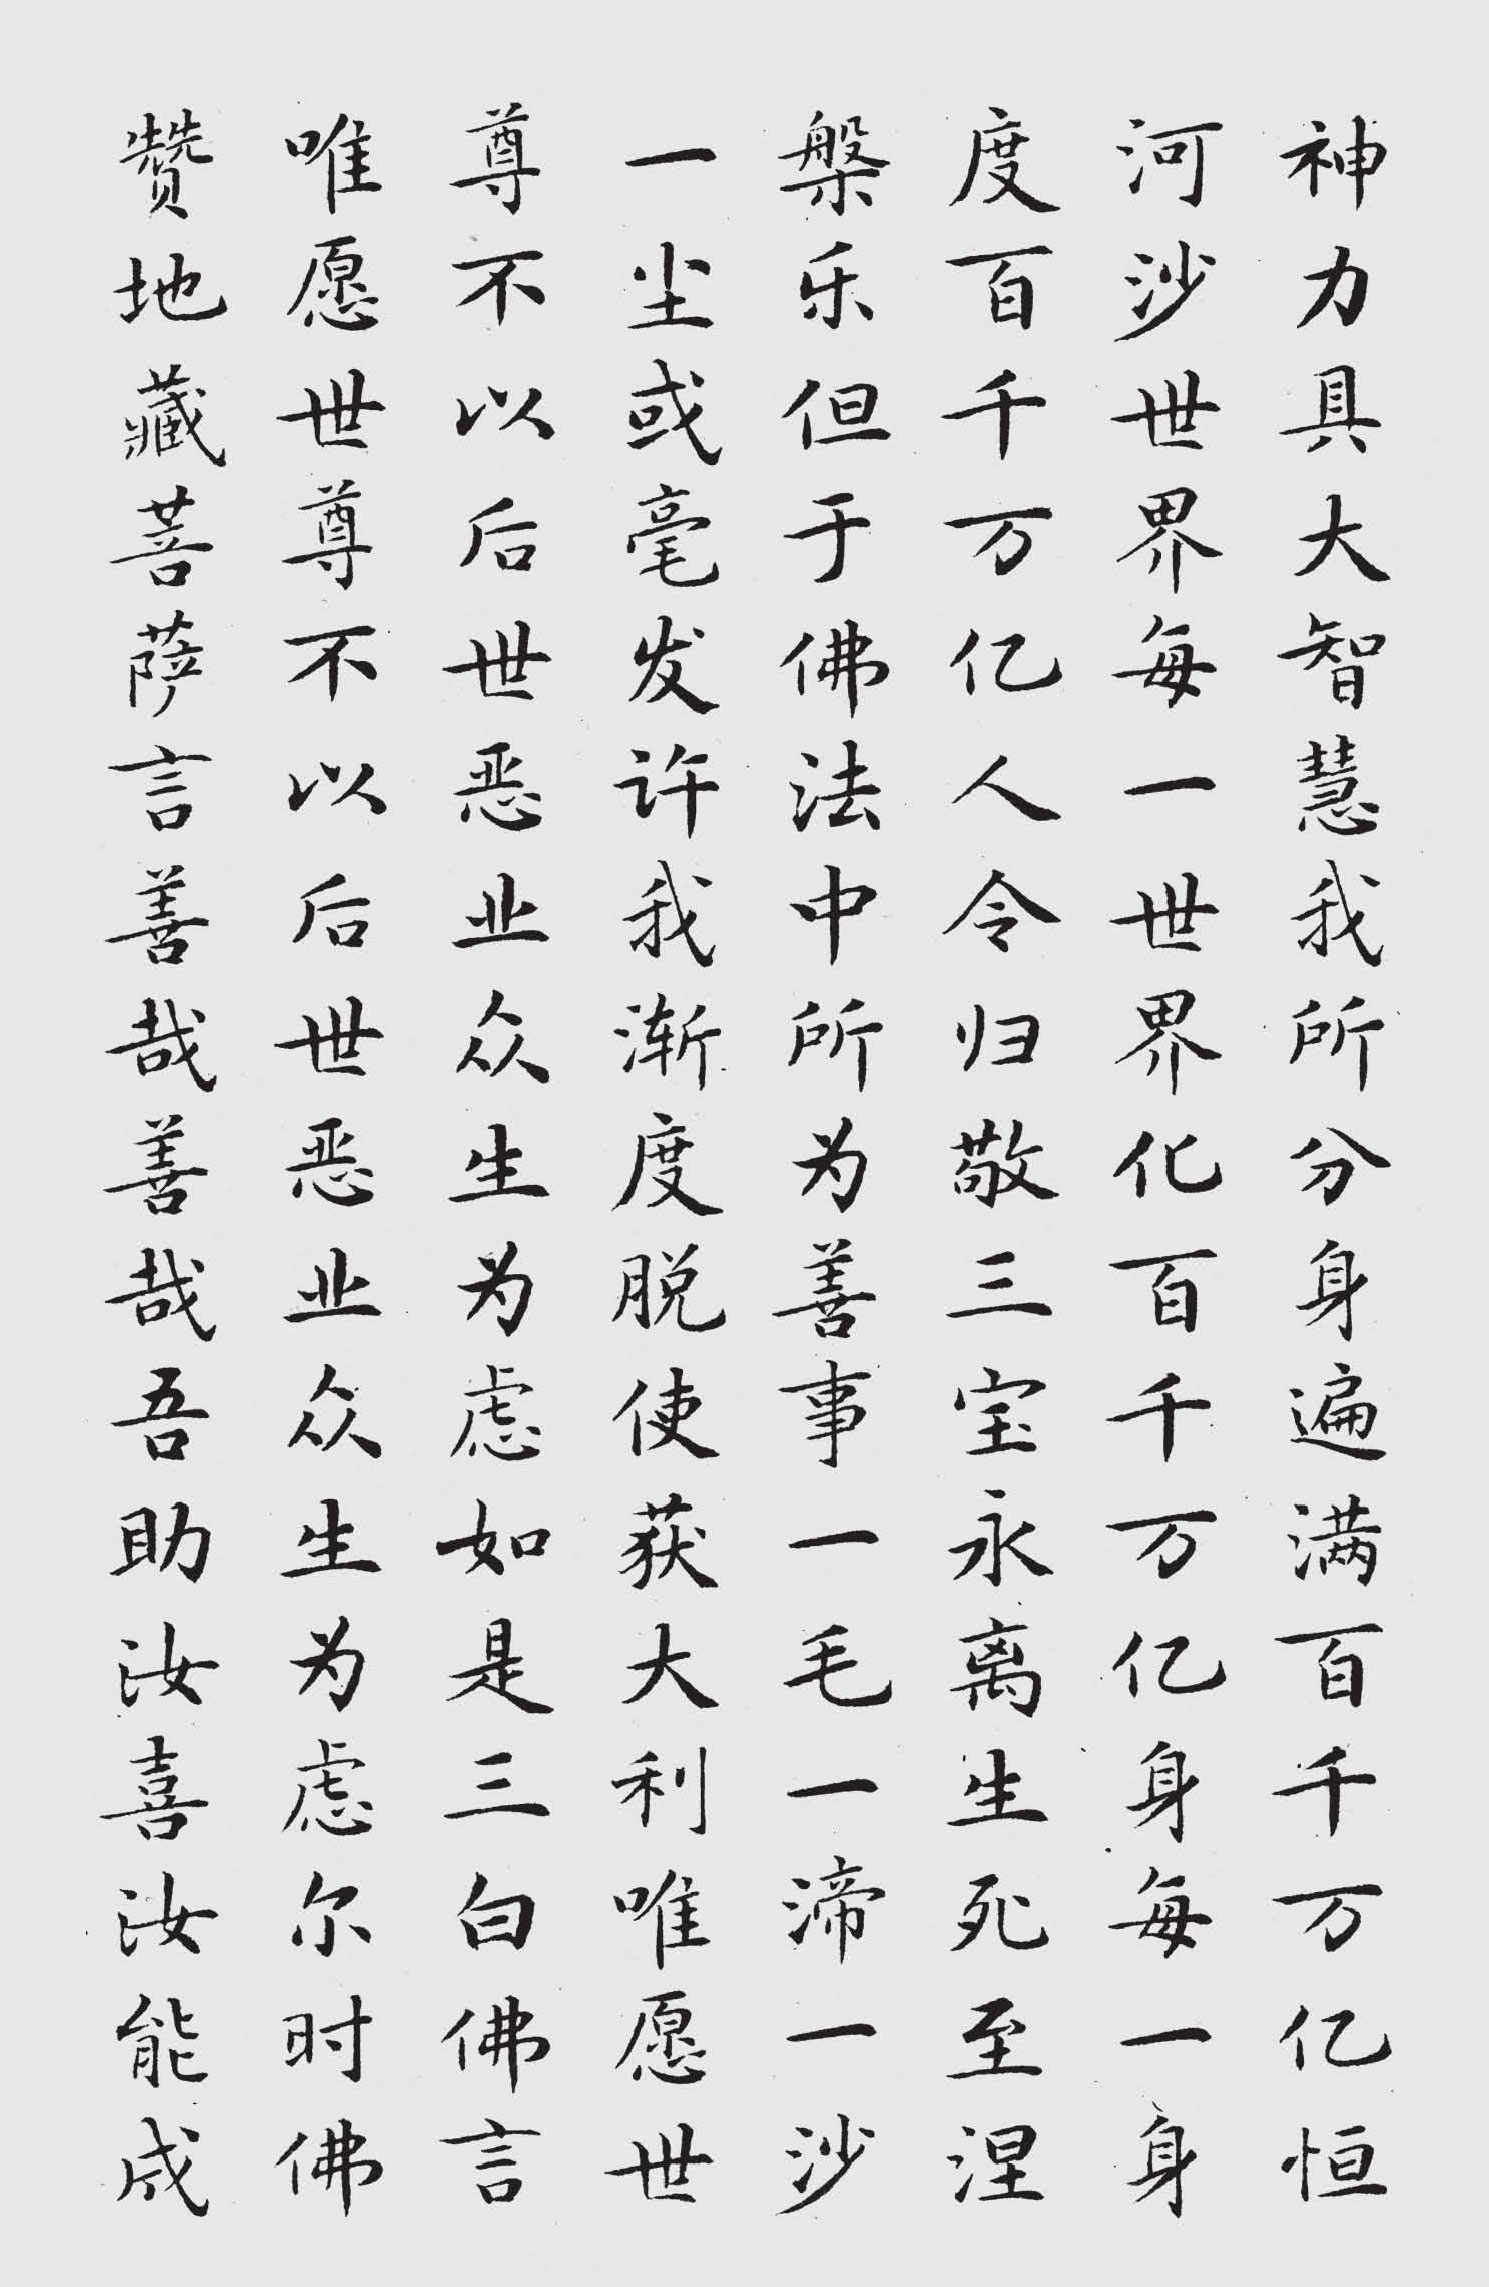 神力具大智慧我所分身遍满百千万亿恒
河沙世界每一世界化百千万亿身每一身
度百千万亿人令归敬三宝永离生死至涅
槃乐但于佛法中所为善事一毛一渧一沙
一尘或毫发许我渐度脱使获大利唯愿世
尊不以后世恶业众生为虑如是三白佛言
唯愿世尊不以后世恶业众生为虑尔时佛
赞地藏菩萨言善哉善哉吾助汝喜汝能成